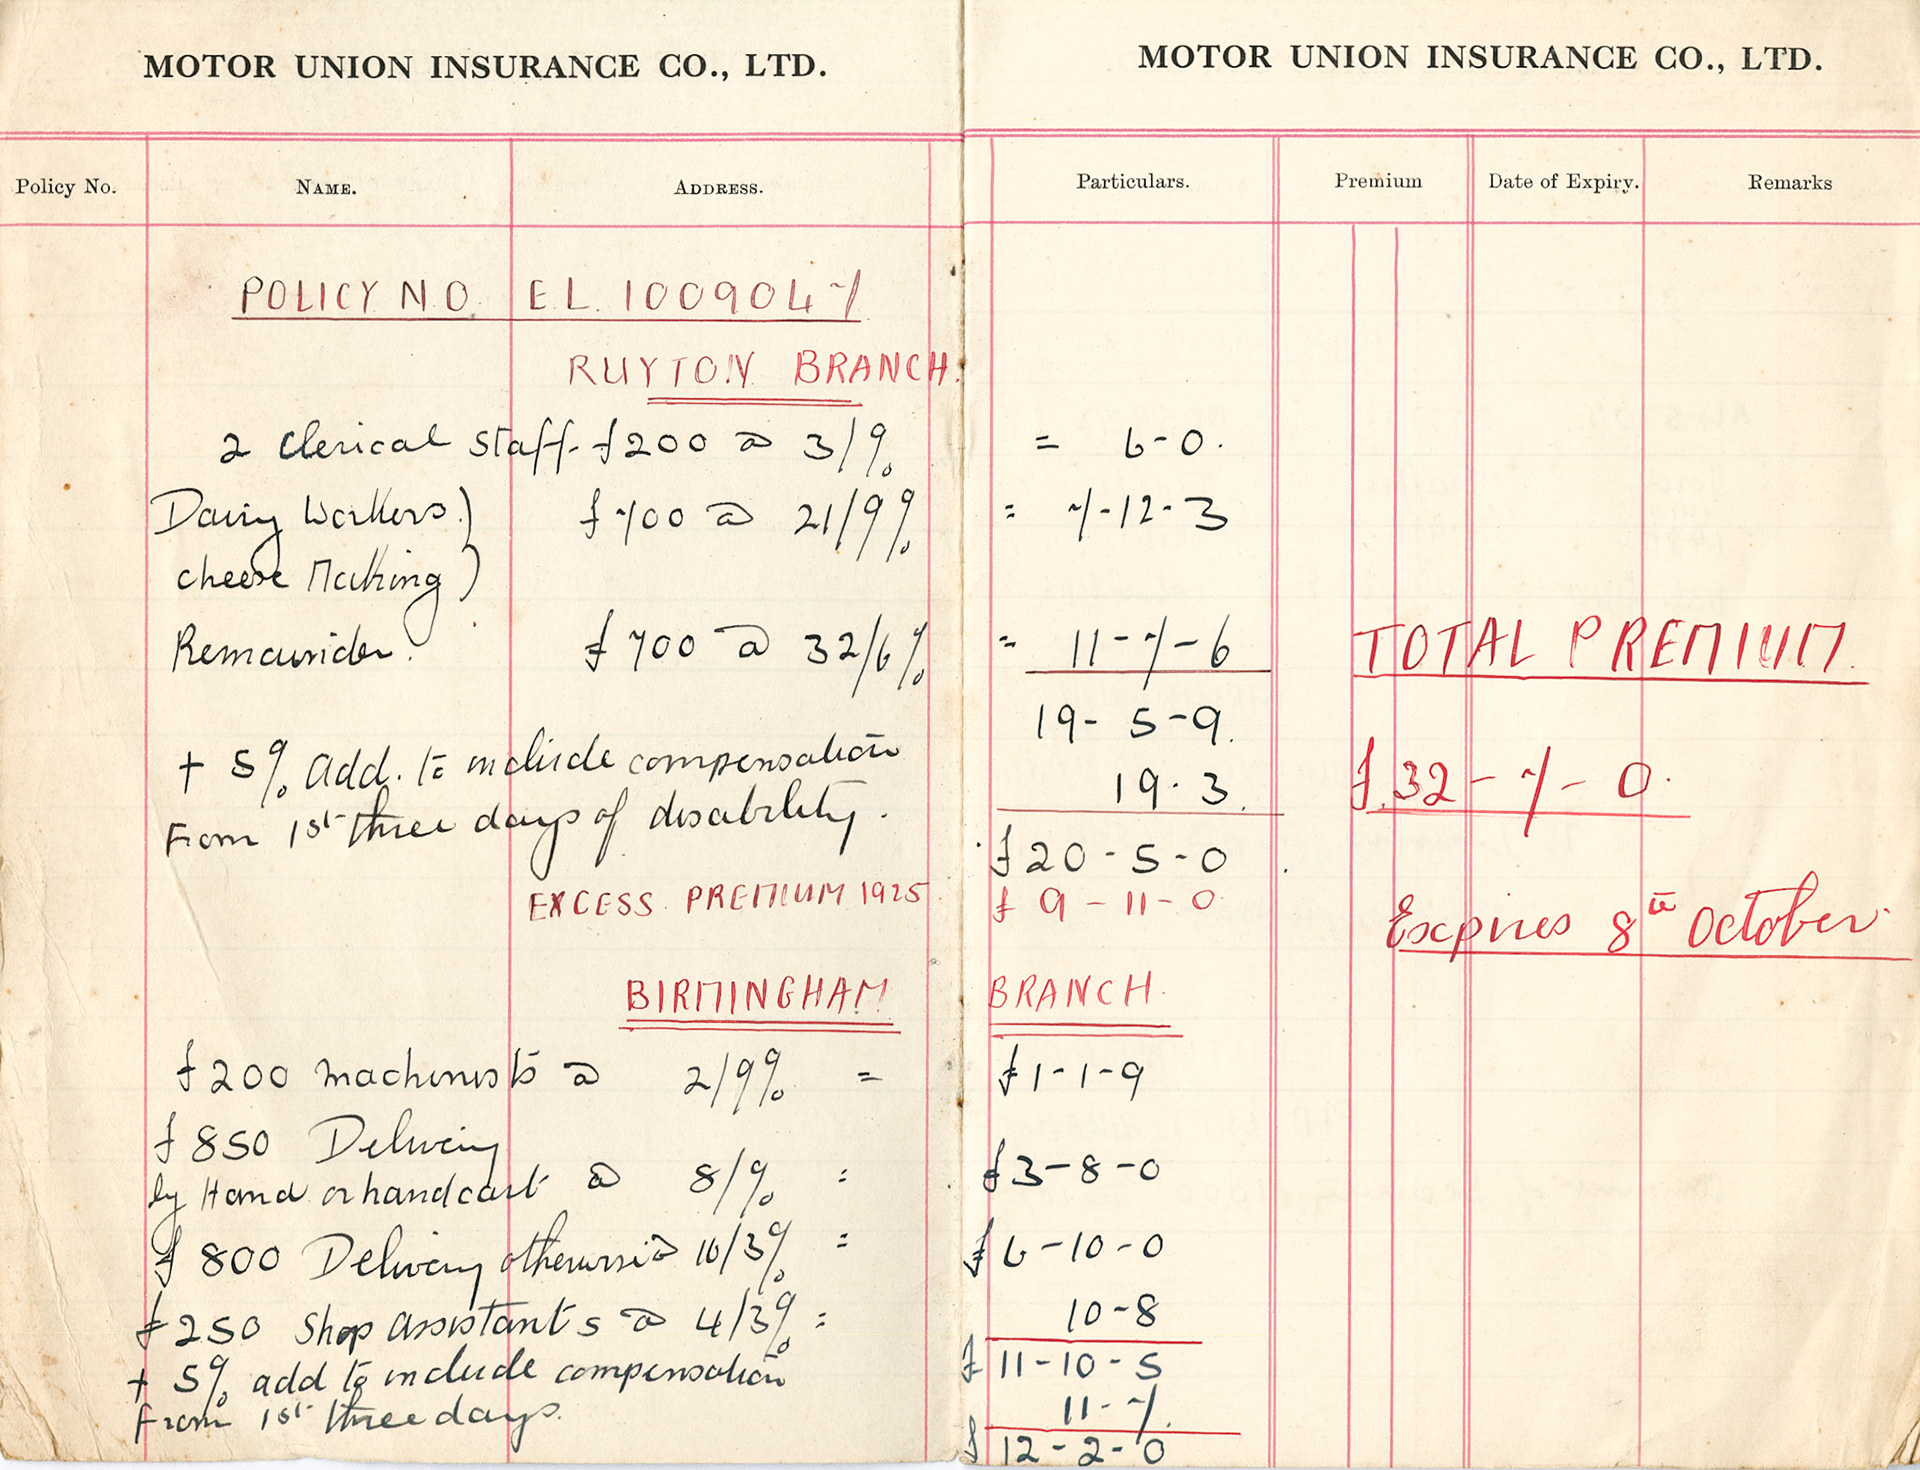 MOTOR UNION INSURANCE CO., LTD. MOTOR UNION INSURANCE CO., LTD.
Policy No. NAME. ADDRESS. Particulars. Premium Date of Expiry. Remarks
POLICY NO. E.L. 1009047
RUYTON BRANCH.
2 Clerical Staff - £200 @ 3/% = 6-0.
Dairy Workers ) £700 @ 21/9% = 7-12-3
cheese Making )
Remainder. £700 @ 32/6% = 11-7-6 TOTAL PREMIUM.
19-5-9.
+ 5% Add. to include compensation 19.3. £32-7-0.
From 1st three days of disability. £20-5-0
EXCESS. PREMIUM 1925. £9-11-0 Expires 8th October.
BIRMINGHAM BRANCH.
£200 machinists @ 2/9% = £1-1-9
£850 Delivery
by Hand or handcart @ 8/% = £3-8-0
£800 Delivery otherwise 16/3% = £6-10-0
£250 Shop assistants @ 4/3% = 10-8
+ 5% add to include compensation £11-10-5
From 1st three days. 11-7.
£12-2-0